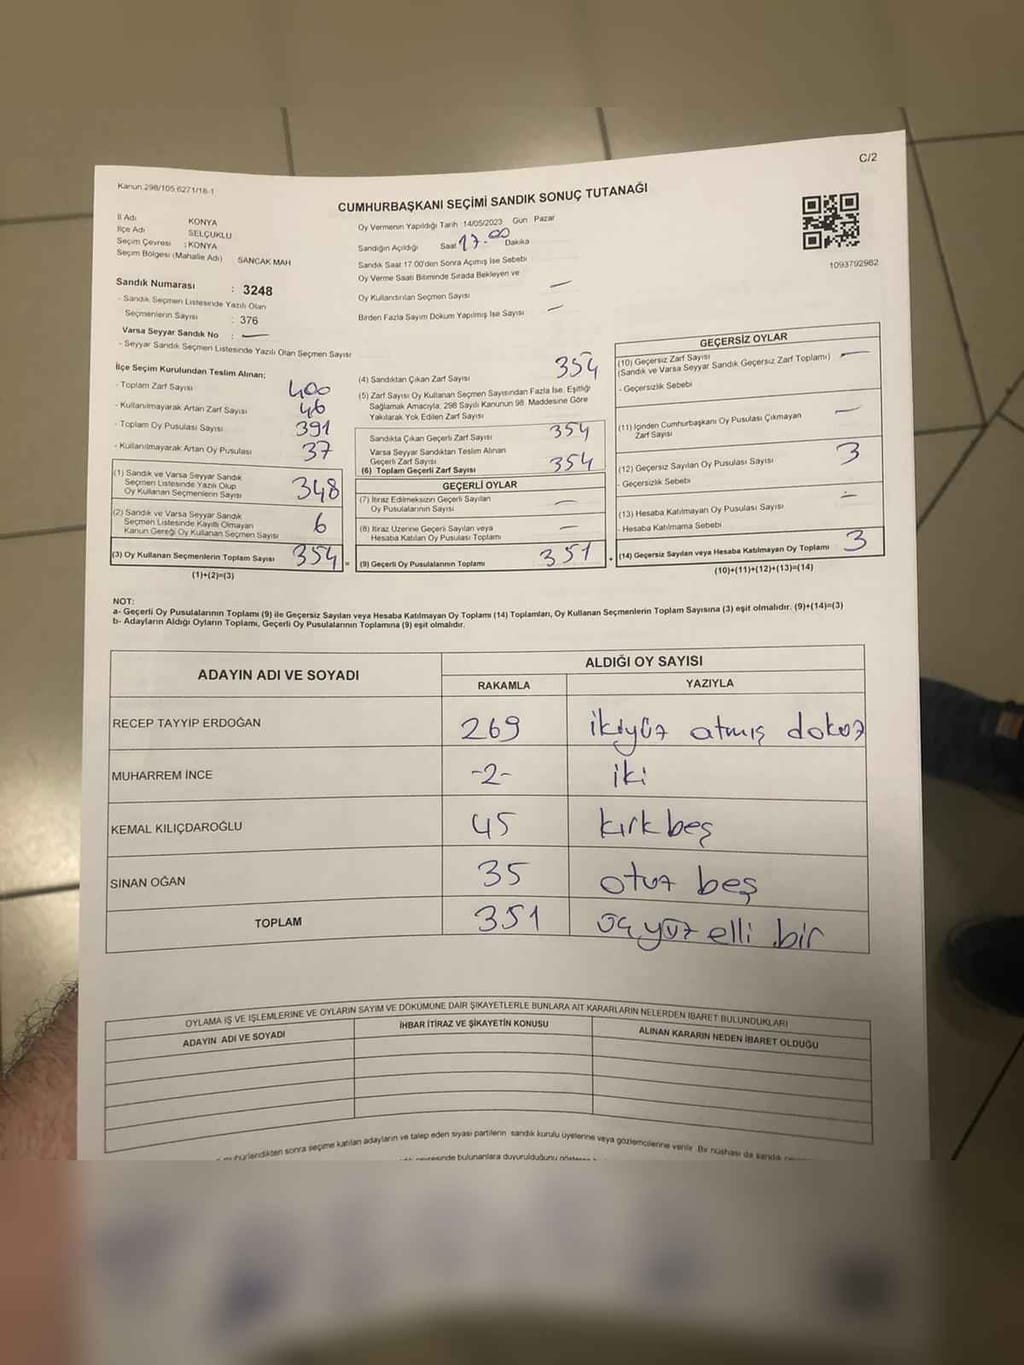 C/2
Kanun.298/105,6271/18-1
CUMHURBAŞKANI SEÇİMİ SANDIK SONUÇ TUTANAĞI
1093702982
İl Adı KONYA
İlçe Adı SELÇUKLU
Seçim Çevresi : KONYA
Seçim Bölgesi (Mahalle Adı) SANCAK MAH
Sandık Numarası : 3248
- Sandık Seçmen Listesinde Yazılı Olan
Seçmenlerin Sayısı : 376
Varsa Seyyar Sandık No : —
- Seyyar Sandık Seçmen Listesinde Yazılı Olan Seçmen Sayısı
Oy Vermenin Yapıldığı Tarih 14/05/2023 Gün Pazar
Sandığın Açıldığı Saat 17.00 Dakika
Sandık Saat 17.00'den Sonra Açmış İse Sebebi
Oy Verme Saati Bitiminde Sırada Bekleyen ve
Oy Kullandırılan Seçmen Sayısı —
Birden Fazla Sayım Döküm Yapılmış İse Sayısı —
İlçe Seçim Kurulundan Teslim Alınan;
- Toplam Zarf Sayısı 400
- Kullanılmayarak Artan Zarf Sayısı 46
- Toplam Oy Pusulası Sayısı 391
- Kullanılmayarak Artan Oy Pusulası 37
(1) Sandık ve Varsa Seyyar Sandık
Seçmen Listesinde Yazılı Olup
Oy Kullanan Seçmenlerin Sayısı 348
(2) Sandık ve Varsa Seyyar Sandık
Seçmen Listesinde Kayıtlı Olmayan
Kanun Gereği Oy Kullanan Seçmen Sayısı 6
(3) Oy Kullanan Seçmenlerin Toplam Sayısı 354 =
(1)+(2)=(3)
(4) Sandıktan Çıkan Zarf Sayısı 354
(5) Zarf Sayısı Oy Kullanan Seçmen Sayısından Fazla İse, Eşitliği
Sağlamak Amacıyla, 298 Sayılı Kanunun 98. Maddesine Göre
Yakılarak Yok Edilen Zarf Sayısı
Sandıkta Çıkan Geçerli Zarf Sayısı 354
Varsa Seyyar Sandıktan Teslim Alınan
Geçerli Zarf Sayısı
(6) Toplam Geçerli Zarf Sayısı 354
GEÇERLİ OYLAR
(7) İtiraz Edilmeksizin Geçerli Sayılan
Oy Pusulalarının Sayısı —
(8) İtiraz Üzerine Geçerli Sayılan veya
Hesaba Katılan Oy Pusulası Toplamı —
(9) Geçerli Oy Pusulalarının Toplamı 351 +
GEÇERSİZ OYLAR
(10) Geçersiz Zarf Sayısı —
(Sandık ve Varsa Seyyar Sandık Geçersiz Zarf Toplamı)
- Geçersizlik Sebebi
(11) İçinden Cumhurbaşkanı Oy Pusulası Çıkmayan
Zarf Sayısı —
(12) Geçersiz Sayılan Oy Pusulası Sayısı 3
- Geçersizlik Sebebi
(13) Hesaba Katılmayan Oy Pusulası Sayısı —
- Hesaba Katılmama Sebebi
(14) Geçersiz Sayılan veya Hesaba Katılmayan Oy Toplamı 3
(10)+(11)+(12)+(13)=(14)
NOT:
a- Geçerli Oy Pusulalarının Toplamı (9) ile Geçersiz Sayılan veya Hesaba Katılmayan Oy Toplamı (14) Toplamları, Oy Kullanan Seçmenlerin Toplam Sayısına (3) eşit olmalıdır. (9)+(14)=(3)
b- Adayların Aldığı Oyların Toplamı, Geçerli Oy Pusulalarının Toplamına (9) eşit olmalıdır.
ADAYIN ADI VE SOYADI ALDIĞI OY SAYISI
RAKAMLA YAZIYLA
RECEP TAYYİP ERDOĞAN 269 ikiyüz atmış dokuz
MUHARREM İNCE -2- iki
KEMAL KILIÇDAROĞLU 45 kırk beş
SİNAN OĞAN 35 otuz beş
TOPLAM 351 üç yüz elli bir
OYLAMA İŞ VE İŞLEMLERİNE VE OYLARIN SAYIM VE DÖKÜMÜNE DAİR ŞİKAYETLERLE BUNLARA AİT KARARLARIN NELERDEN İBARET BULUNDUKLARI
ADAYIN ADI VE SOYADI İHBAR İTİRAZ VE ŞİKAYETİN KONUSU ALINAN KARARIN NEDEN İBARET OLDUĞU
mühürlendikten sonra seçime katılan adayların ve talep eden siyasi partilerin sandık kurulu üyelerine veya gözlemcilerine verilir. Bir nüshası da sandık
çevresinde bulunanlara duyurulduğunu